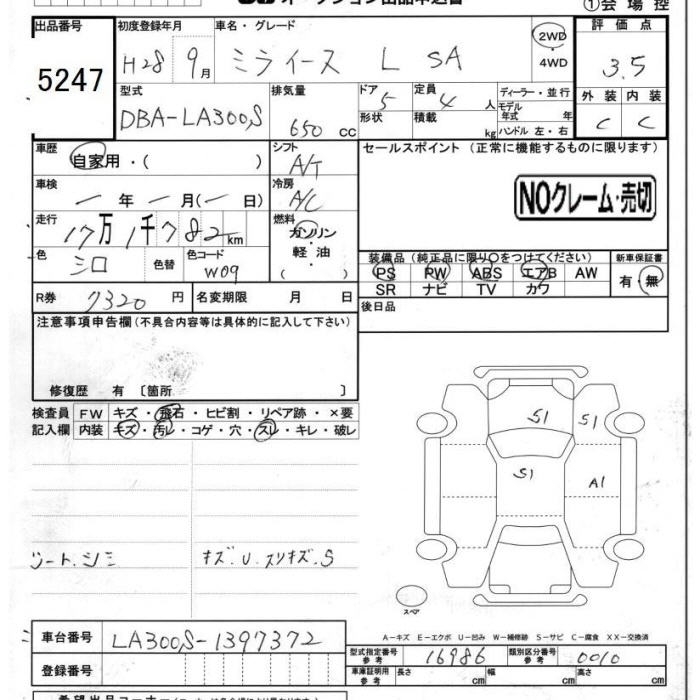 オークション出品申込書
①会場控
出品番号
5247
初度登録年月
H28 9月
車名・グレード
ミライース L SA
2WD・4WD
評価点
3.5
型式
DBA-LA300S
排気量
650 cc
ドア 5
形状
定員 4 人
積載 kg
ディーラー・並行
モデル年式 年
ハンドル 左・右
外装 内装
C C
車歴
自家用・( )
シフト
A/T
車検
一 年 一 月(一 日)
冷房
A/C
走行
17万1千782km
燃料
ガソリン
軽油
色
シロ
色替
色コード
W09
R券 7320 円
名変期限 月 日
セールスポイント (正常に機能するものに限ります)
NOクレーム・売切
装備品 (純正品に限り○をつけてください)
PS PW ABS エアB AW
SR ナビ TV カワ
新車保証書
有・無
後日品
注意事項申告欄 (不具合内容等は具体的に記入して下さい)
修復歴 有 〔箇所 〕
検査員記入欄
FW キズ・飛石・ヒビ割・リペア跡・×要
内装 キズ・汚レ・コゲ・穴・スレ・キレ・破レ
シート.シミ
キズ.U.スリキズ.S
S1 S1
S1 A1
スペア
A-キズ E-エクボ U-凹み W-補修跡 S-サビ C-腐食 XX-交換済
車台番号
LA300S-1397372
登録番号
型式指定番号 参考 16986
類別区分番号 参考 0010
車庫証明用 参考 長さ cm 幅 cm 高さ cm
希望出品コーナー